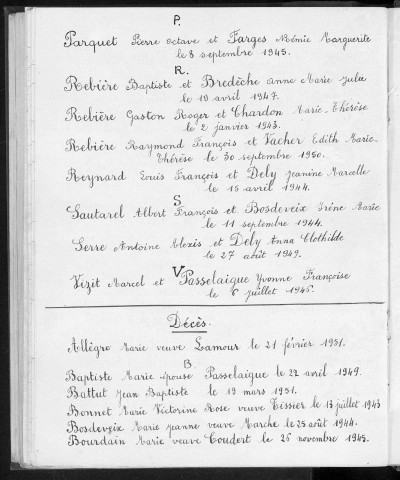 P.
Parquet Pierre Octave et Farges Noémie Marguerite
le 8 septembre 1945.
R.
Rebière Baptiste et Bredèche Anne Marie Julie
le 19 avril 1947.
Rebière Gaston Roger et Chardon Marie Thérèse
le 2 janvier 1943.
Rebière Raymond François et Vacher Edith Marie-
Thérèse le 30 septembre 1950.
Reynard Louis François et Dely Jeanine Marcelle
le 15 avril 1944.
S.
Sautarel Albert François et Bosdeveix Irène Marie
le 11 septembre 1944.
Serre Antoine Alexis et Dely Anna Clothilde
le 27 août 1949.
V.
Vizit Marcel et Passelaigue Yvonne Françoise
le 6 juillet 1946.
Décès.
Allègre Marie veuve Lamour le 21 février 1951.
B.
Baptiste Marie épouse Passelaigue le 22 avril 1949.
Battut Jean Baptiste le 19 mars 1951.
Bonnet Marie Victorine Rose veuve Tissier le 13 juillet 1943
Bosdeveix Marie Jeanne veuve Marche le 25 août 1944.
Bourdain Marie veuve Coudert le 26 novembre 1945.